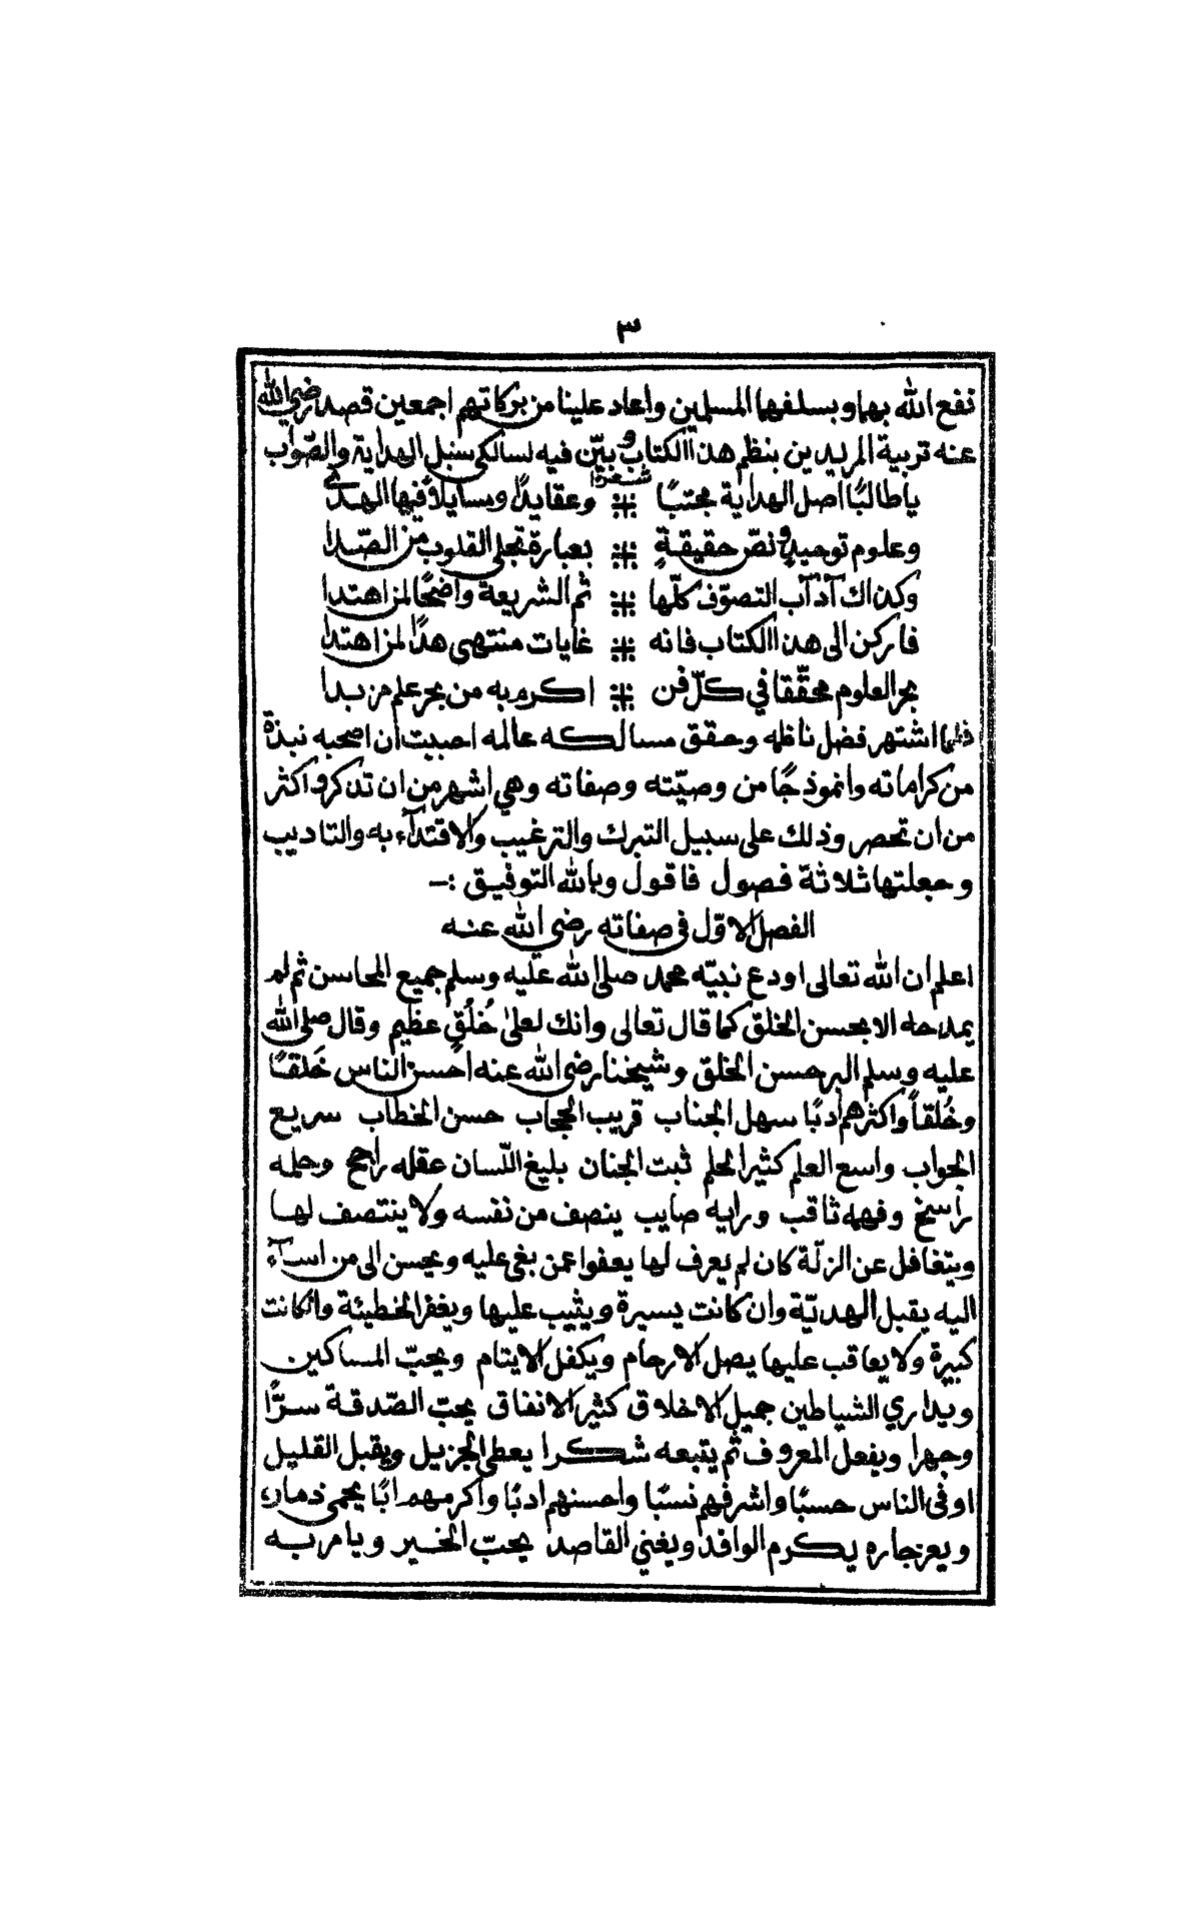 ٣
نفع الله بهما وبسلفهما المسلمين واعاد علينا من بركاتهم اجمعين قصد رضي الله
عنه تربية المريدين بنظم هذا الكتاب وبيّن فيه لسالكي سبل الهداية والصّواب
شعرًا
ياطالبًا اصل الهداية مجتبًا ⁜ وعقايدًا ومسايلاً فيها الهدى
وعلوم توحيدٍ ونصّ حقيقةٍ ⁜ بعبارة تجلى القلوب من الصّدا
وكذاك آدآب التصوّف كلّها ⁜ ثم الشريعة واضحًا لمن اهتدا
فاركن الى هذا الكتاب فانه ⁜ غايات منتهى هدًا لمن اهتدا
بحر العلوم محقّقا في كلّ فن ⁜ اكرم به من بحر علم من بدا
فلما اشتهر فضل ناظمه وحقق مسالكه عالمه احببت ان اصحبه نبذة
من كراماته وانموذجًا من وصيّته وصفاته وهي اشهر من ان تذكر واكثر
من ان تحصر وذلك على سبيل التبرك والترغيب والاقتدآء به والتاديب
وجعلتها ثلاثة فصول فاقول وبالله التوفيق :ـ
الفصل الاوّل في صفاته رضي الله عنه
اعلم ان الله تعالى اودع نبيّه محمد صلى الله عليه وسلم جميع المحاسن ثم لم
يمدحه الا بحسن الخلق كما قال تعالى وانك لعلىٰ خُلُقٍ عظيم وقال صلى الله
عليه وسلم البر حسن الخلق وشيخنا رضي الله عنه احسن الناس خَلقًا
وخُلقاً واكثرهم ادبًا سهل الجناب قريب الحجاب حسن الخطاب سريع
الجواب واسع العلم كثير الحلم ثبت الجنان بليغ اللّسان عقله راجح وحلمه
راسخ وفهمه ثاقب ورايه صايب ينصف من نفسه ولا ينتصف لها
ويتغافل عن الزلّة كان لم يعرف لها يعفوا عمن بغى عليه ويحسن الى من اسآء
اليه يقبل الهديّة وان كانت يسيرة ويثيب عليها ويغفر الخطيئة وان كانت
كبيرة ولا يعاقب عليها يصل الارحام ويكفل الايتام ويحبّ المساكين
ويداري الشياطين جميل الاخلاق كثير الانفاق يحبّ الصّدقة سرًّا
وجهرا ويفعل المعروف ثم يتبعه شكرا يعطى الجزيل ويقبل القليل
اوفى الناس حسبًا واشرفهم نسبًا واحسنهم ادبًا واكرمهم ابًا يحمى ذماره
ويعز جاره يكرم الوافد ويغني القاصد يحبّ الخير ويامر به